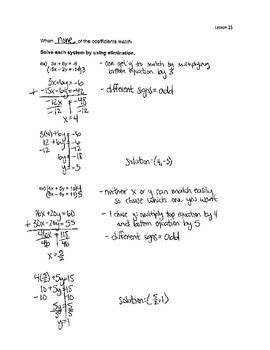 Lesson 23
When none of the coefficients match
Solve each system by using elimination.
ex) 3x + 6y = -6
(-5x - 2y = -14)3
- can get y's to match by multiplying
bottom equation by 3
- different signs = add
3x + 6y = -6
+ -15x - 6y = -42
-12x = -48
-12 -12
x = 4
3(4) + 6y = -6
12 + 6y = -6
-12 -12
6y = -18
y = -3
solution: (4, -3)
ex) (4x + 5y = 15)4
(6x - 4y = 11)5
- neither x or y can match easily
so chose which one you want
- I chose y; multiply top equation by 4
and bottom equation by 5
- different signs = add
16x + 20y = 60
+ 30x - 20y = 55
46x = 115
46 46
x = 5/2
4(5/2) + 5y = 15
10 + 5y = 15
-10 -10
5y = 5
5 5
y = 1
solution: (5/2, 1)